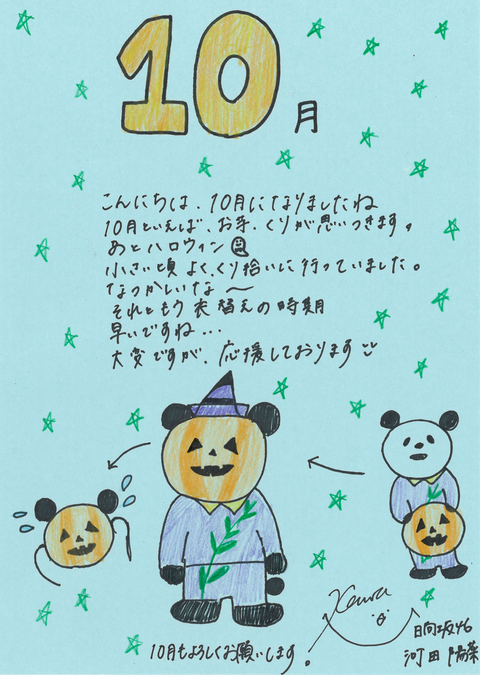 10月
こんにちは、10月になりましたね
10月といえば、お芋、くりが思いつきます。
あとハロウィン
小さい頃よくくり拾いに行っていました。
なつかしいな〜
それともう衣替えの時期
早いですね...
大変ですが、応援しております
Kawa
日向坂46
河田陽菜
10月もよろしくお願いします。